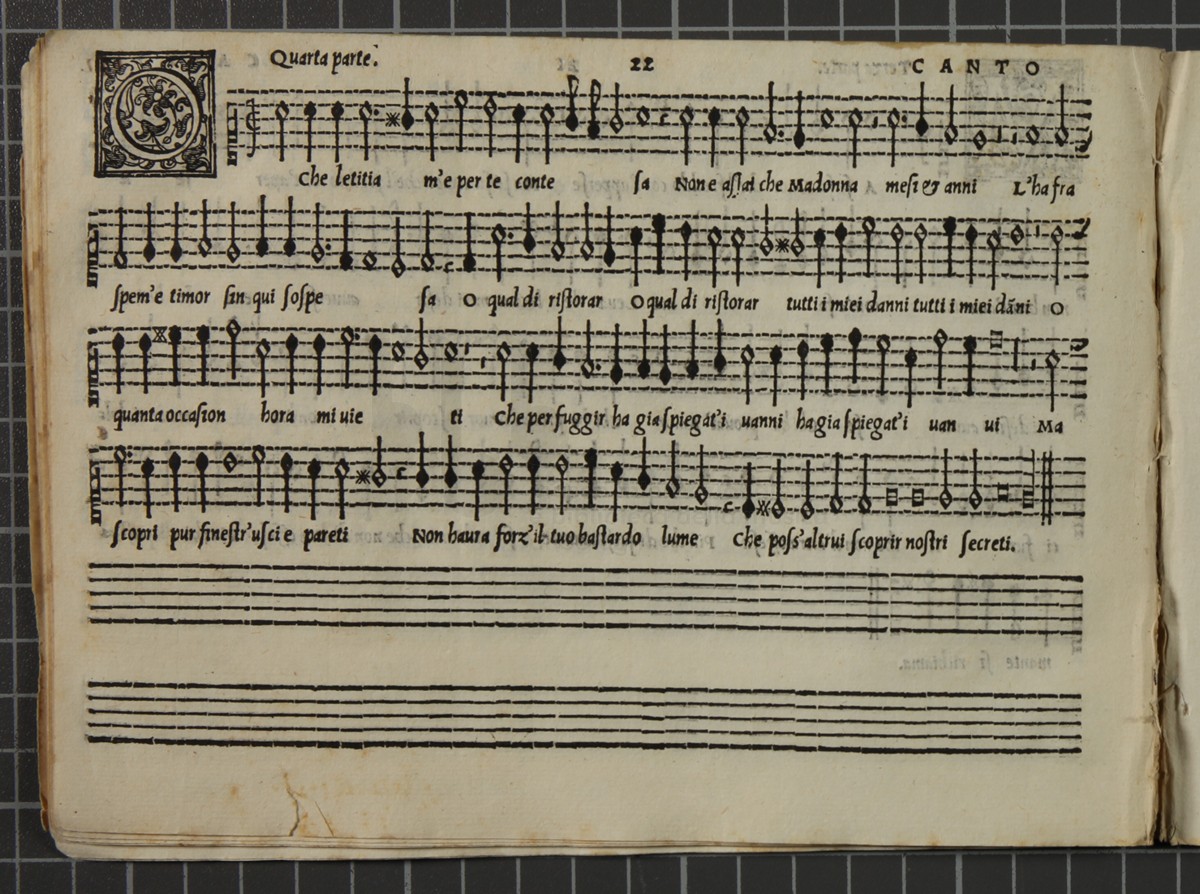 Quarta parte. 22 CANTO
O Che letitia m'e per te conte sa Non e assai che Madonna mesi & anni L'ha fra
spem'e timor sin qui sospe sa O qual di ristorar O qual di ristorar tutti i miei danni tutti i miei dāni O
quanta occasion hora mi uie ti Che per fuggir ha gia spiegat'i uanni ha gia spiegat'i uan ui Ma
scopri pur finestr'usci e pareti Non haura forz'il tuo bastardo lume Che poss'altrui scoprir nostri secreti.